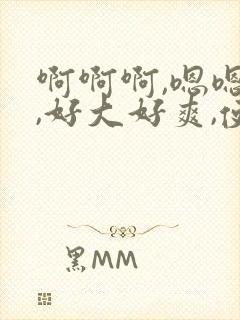 啊啊啊,嗯嗯
,好大好爽,
黑MM